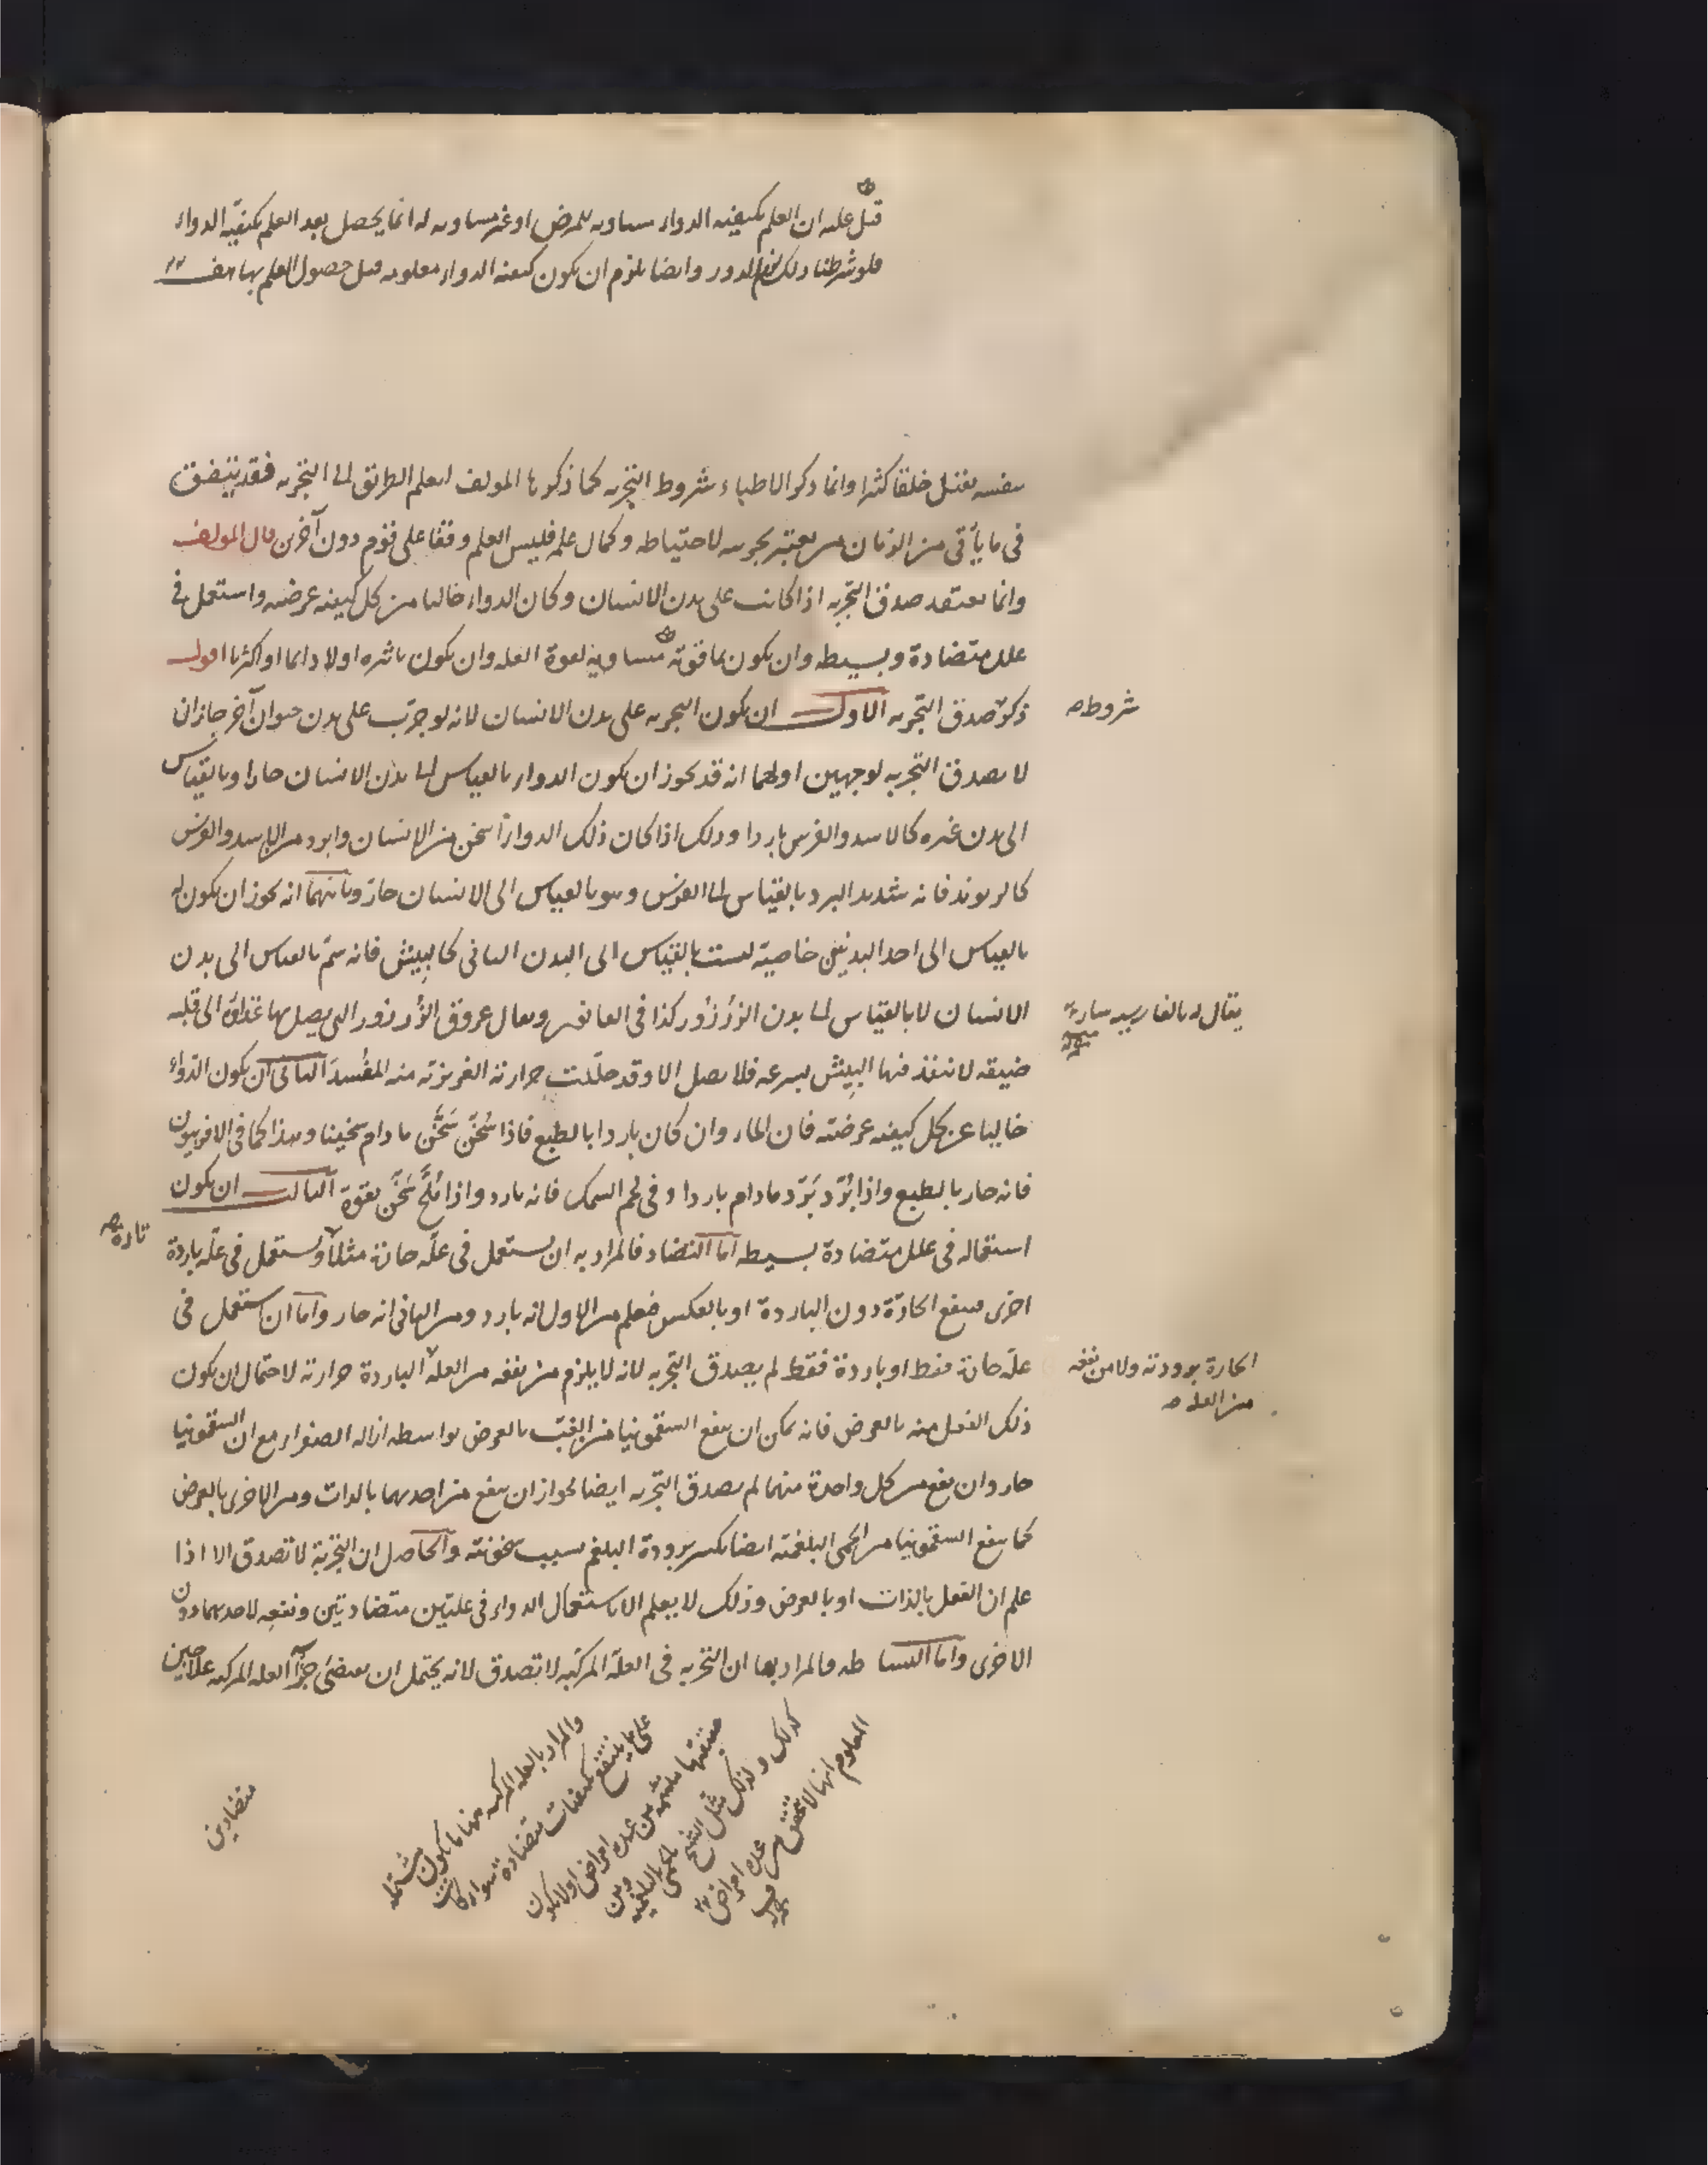 قيل عليه ان العلم بكيفيه الدواء مساويه للمرض او غير مساويه له انما يحصل بعد العلم بكيفيّه الدواء
فلو شرطنا ذلك لزم الدور وايضا يلزم ان يكون كيفيه الدواء معلومه قبل حصول العلم بها هف
بنفسه يقتل خلقا كثيرا وانما ذكر الاطباء شروط التجربه كما ذكرها المولف ليعلم الطريق الى التجربه فقد يتفق
فى ما يأتى من الزمان من يعتبر بجربه لاحتياطه وكمال علمه فليس العلم وقفا على قوم دون آخرين قال المولف
وانما يعتقد صدق التجربه اذا كانت على بدن الانسان وكان الدواء خاليا من كل كيفيه عرضيه واستعمل فى
علل متضادة وبسيطه وان يكون ما قوته مساويه لقوة العله وان يكون تاثيره اولا دائما او اكثريا اقول
ذكر صدق التجربه الاول ان يكون التجربه على بدن الانسان لانه لو جرّب على بدن حيوان آخر جاز ان
شروط صح
لا يصدق التجربه لوجهين اولهما انه قد يجوز ان يكون الدواء بالقياس الى بدن الانسان حارا وبالقياس
الى بدن غيره كالاسد والفرس باردا وذلك اذا كان ذلك الدواء أسخن من الانسان وابرد من الاسد والفرس
كالريوند فانه شديد البرد بالقياس الى الفرس وهو بالقياس الى الانسان حارّ وثانيهما انه يجوز ان يكون له
بالقياس الى احد البدنين خاصيّة ليست بالقياس الى البدن الثانى كالبيش فانه سمّ بالقياس الى بدن
الانسان لا بالقياس الى بدن الزُرزُور كذا فى القانون ويقال عروق الزُرزور التى يصل بها غذاؤه الى قلبه
يقال له بالفارسيه سار
ضيقه لا ينفذ فيها البيش بسرعه فلا يصل الا وقد حلّلت حرارته الغريزيّه منه المفسد الثانى ان يكون الدواء
خاليا عن كل كيفيه عرضيّه فان الماء وان كان باردا بالطبع فاذا سُخّن سَخَّن ما دام سخينا وهذا كما فى الافربيون
فانه حار بالطبع واذا بُرّد بَرّد مادام باردا وفى لحم السمك فانه بارد واذا مُلّح سَخَّن بقوة الثالث ان يكون
استعماله فى علل متضادة بسيطه اما التضاد فالمراد به ان يستعمل فى علّه حارّة مثلا ويستعمل فى علّه باردة
تارة صح
اخرى فينفع الحارّة دون الباردة او بالعكس فيعلم من الاول انه بارد ومن الثانى انه حار واما ان استعمل فى
علّه حارّة فقط او باردة فقط لم يصدق التجربه لانه لا يلزم من نفعه من العله الباردة حرارته لاحتمال ان يكون
الحارة برودته ولا من نفعه
من العله صح
ذلك الفعل منه بالعرض فانه يمكن ان ينفع السقمونيا من الغبّ بالعرض بواسطه ازاله الصفراء مع ان السقمونيا
حار وان نفع من كل واحدة منهما لم يصدق التجربه ايضا لجواز ان ينفع من احديهما بالذات ومن الاخرى بالعرض
كما ينفع السقمونيا من الحمى البلغميّه ايضا بكسر برودة البلغم بسبب سخونته والحاصل ان التجربة لا تصدق الا اذا
علم ان الفعل بالذات او بالعرض وذلك لا يعلم الا باستعمال الدواء فى علتين متضادتين ونفعِه لاحديهما دون
الاخرى واما البساطه فالمراد بها ان التجربه فى العلّه المركبه لا تصدق لانه يحتمل ان يقتضى جزءا العله المركبه علاجين
متضادين
والمراد بالعله المركبه ههنا ما يكون مشتمله
على ما ينتفع بكيفيات متضادة سواء كانت
حقيقتها ملتئمه من عدة امراض او لا يكون
كذلك ولذلك مثّل الشيخ بالحمى البلغميه ومن
المعلوم انها لا تتحقق من عدة امراض